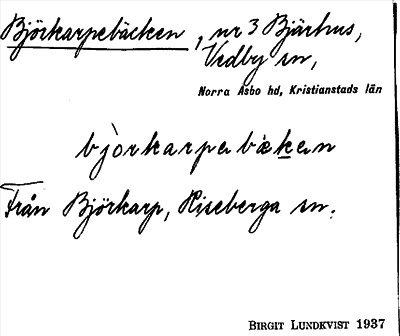 Björkarpebäcken, nr 3 Bjärhus,
Vedby sn,
Norra Åsbo hd, Kristianstads län
bjòrkarpabǽkan
Från Björkarp, Riseberga sn.
BIRGIT LUNDKVIST 1937